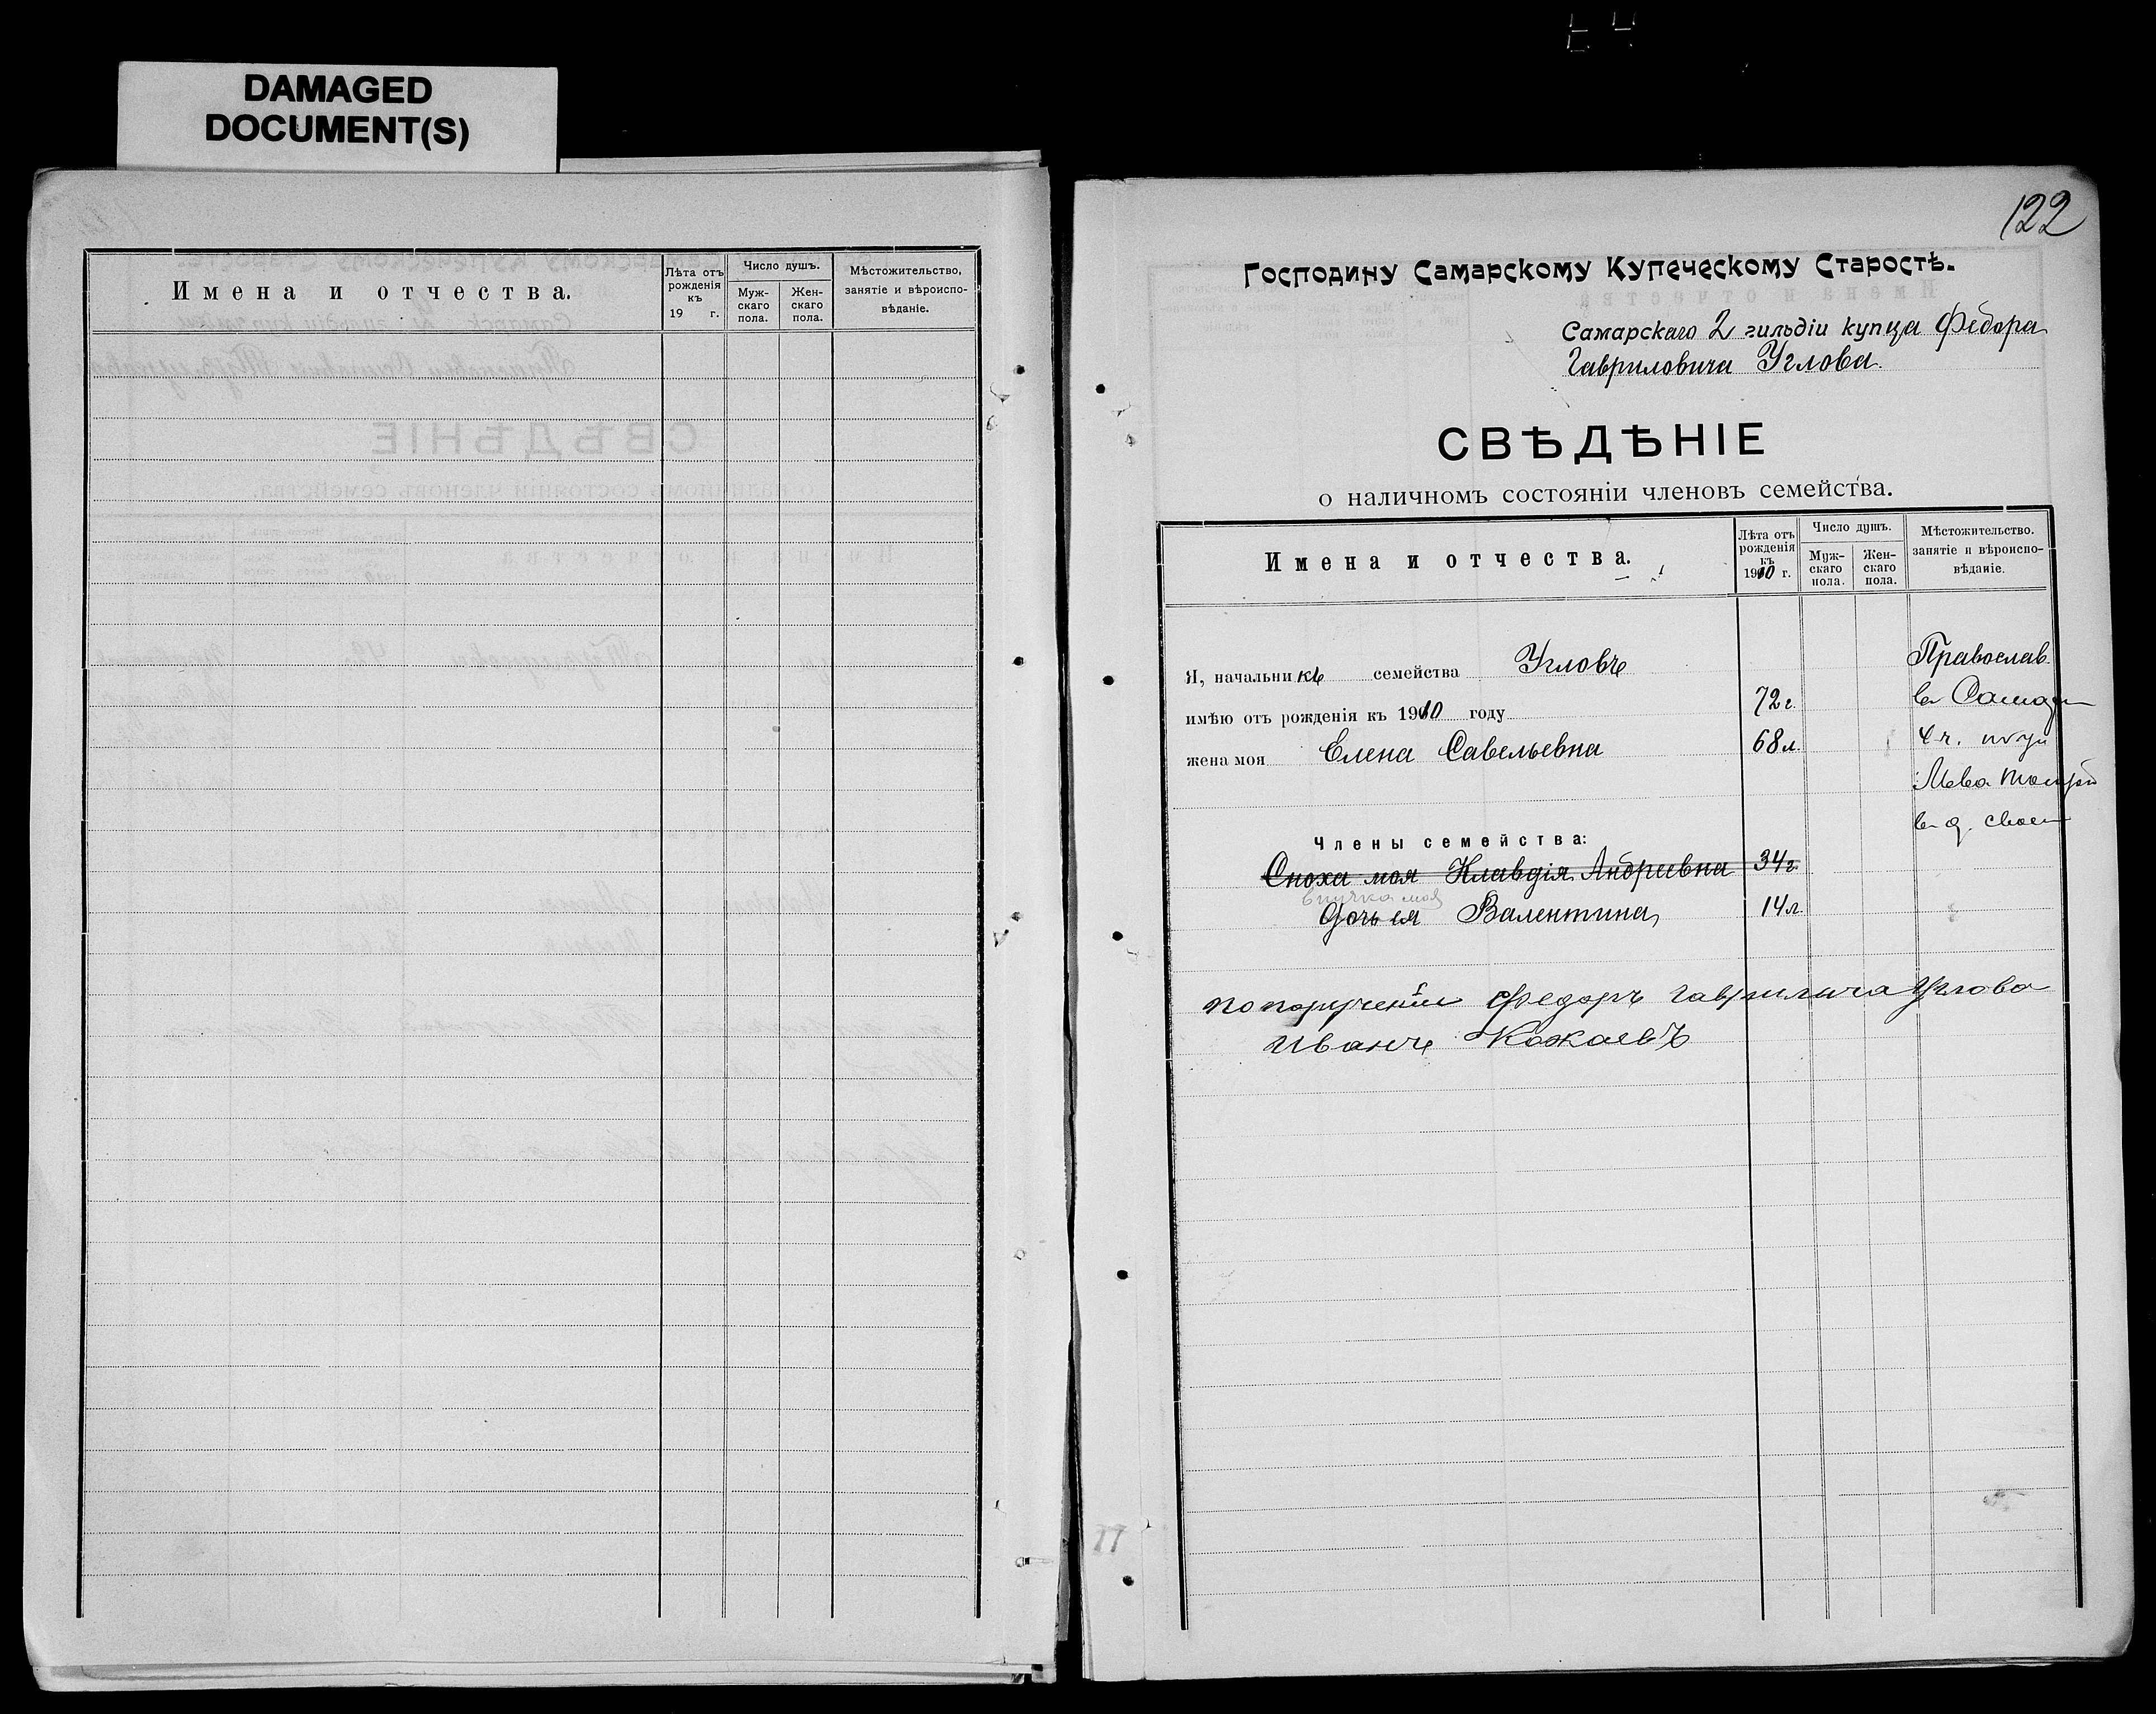 DAMAGED
DOCUMENT(S)
Имена и отчества.
Лѣта отъ
рожденія
къ
19 г.
Число душъ.
Муж-
скаго
пола.
Жен-
скаго
пола.
Мѣстожительство,
занятіе и вѣроиспо-
вѣданіе.
122
Господину Самарскому Купеческому Старостѣ.
Самарскаго 2 гильдіи купца Федора
Гавриловича Углова.
СВѢДѢНІЕ
о наличномъ состояніи членовъ семейства.
Имена и отчества.
Лѣта отъ
рожденія
къ
1910 г.
Число душъ.
Муж-
скаго
пола.
Жен-
скаго
пола.
Мѣстожительство.
занятіе и вѣроиспо-
вѣданіе.
Я, начальникъ семейства Угловъ
Православ.
имѣю отъ рожденія къ 1910 году 72 г.
жена моя Елена Савельевна 68 л.
въ д. своем
Члены семейства:
Сноха моя Клавдія Андреевна 34 г.
внучка моя
дочь ея Валентина, 14 л.
по порученію Федоръ Гаврилыча Углова
Иванъ Кожаевъ